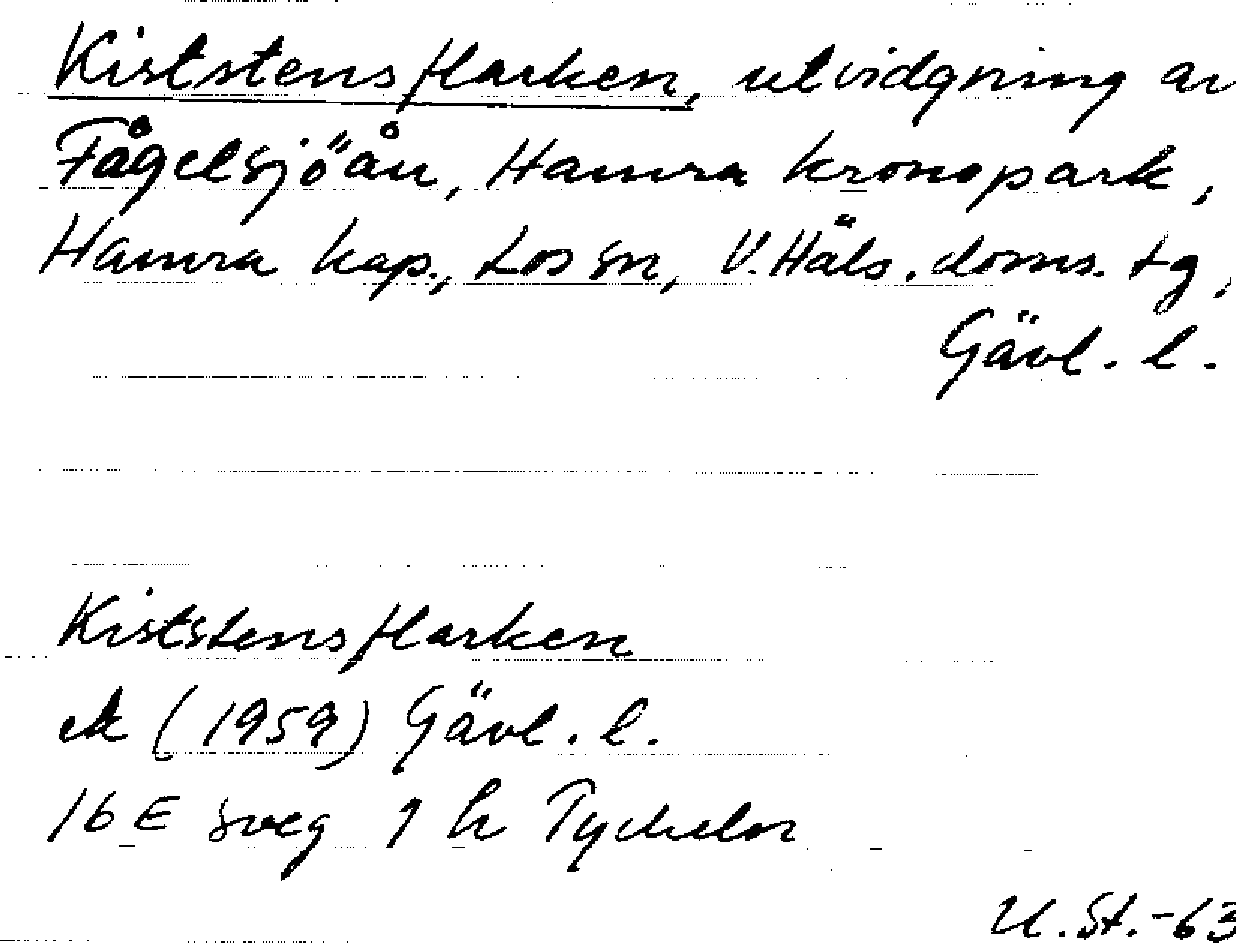 Kiststensflarken, utvidgning av
Fågelsjöån, Hamra kronopark,
Hamra kap., Los sn, V. Häls. doms. tg,
Gävl. l.
Kiststensflarken
ek (1959) Gävl. l.
16 E Sveg 1 h Tyckeln
U. St. -63